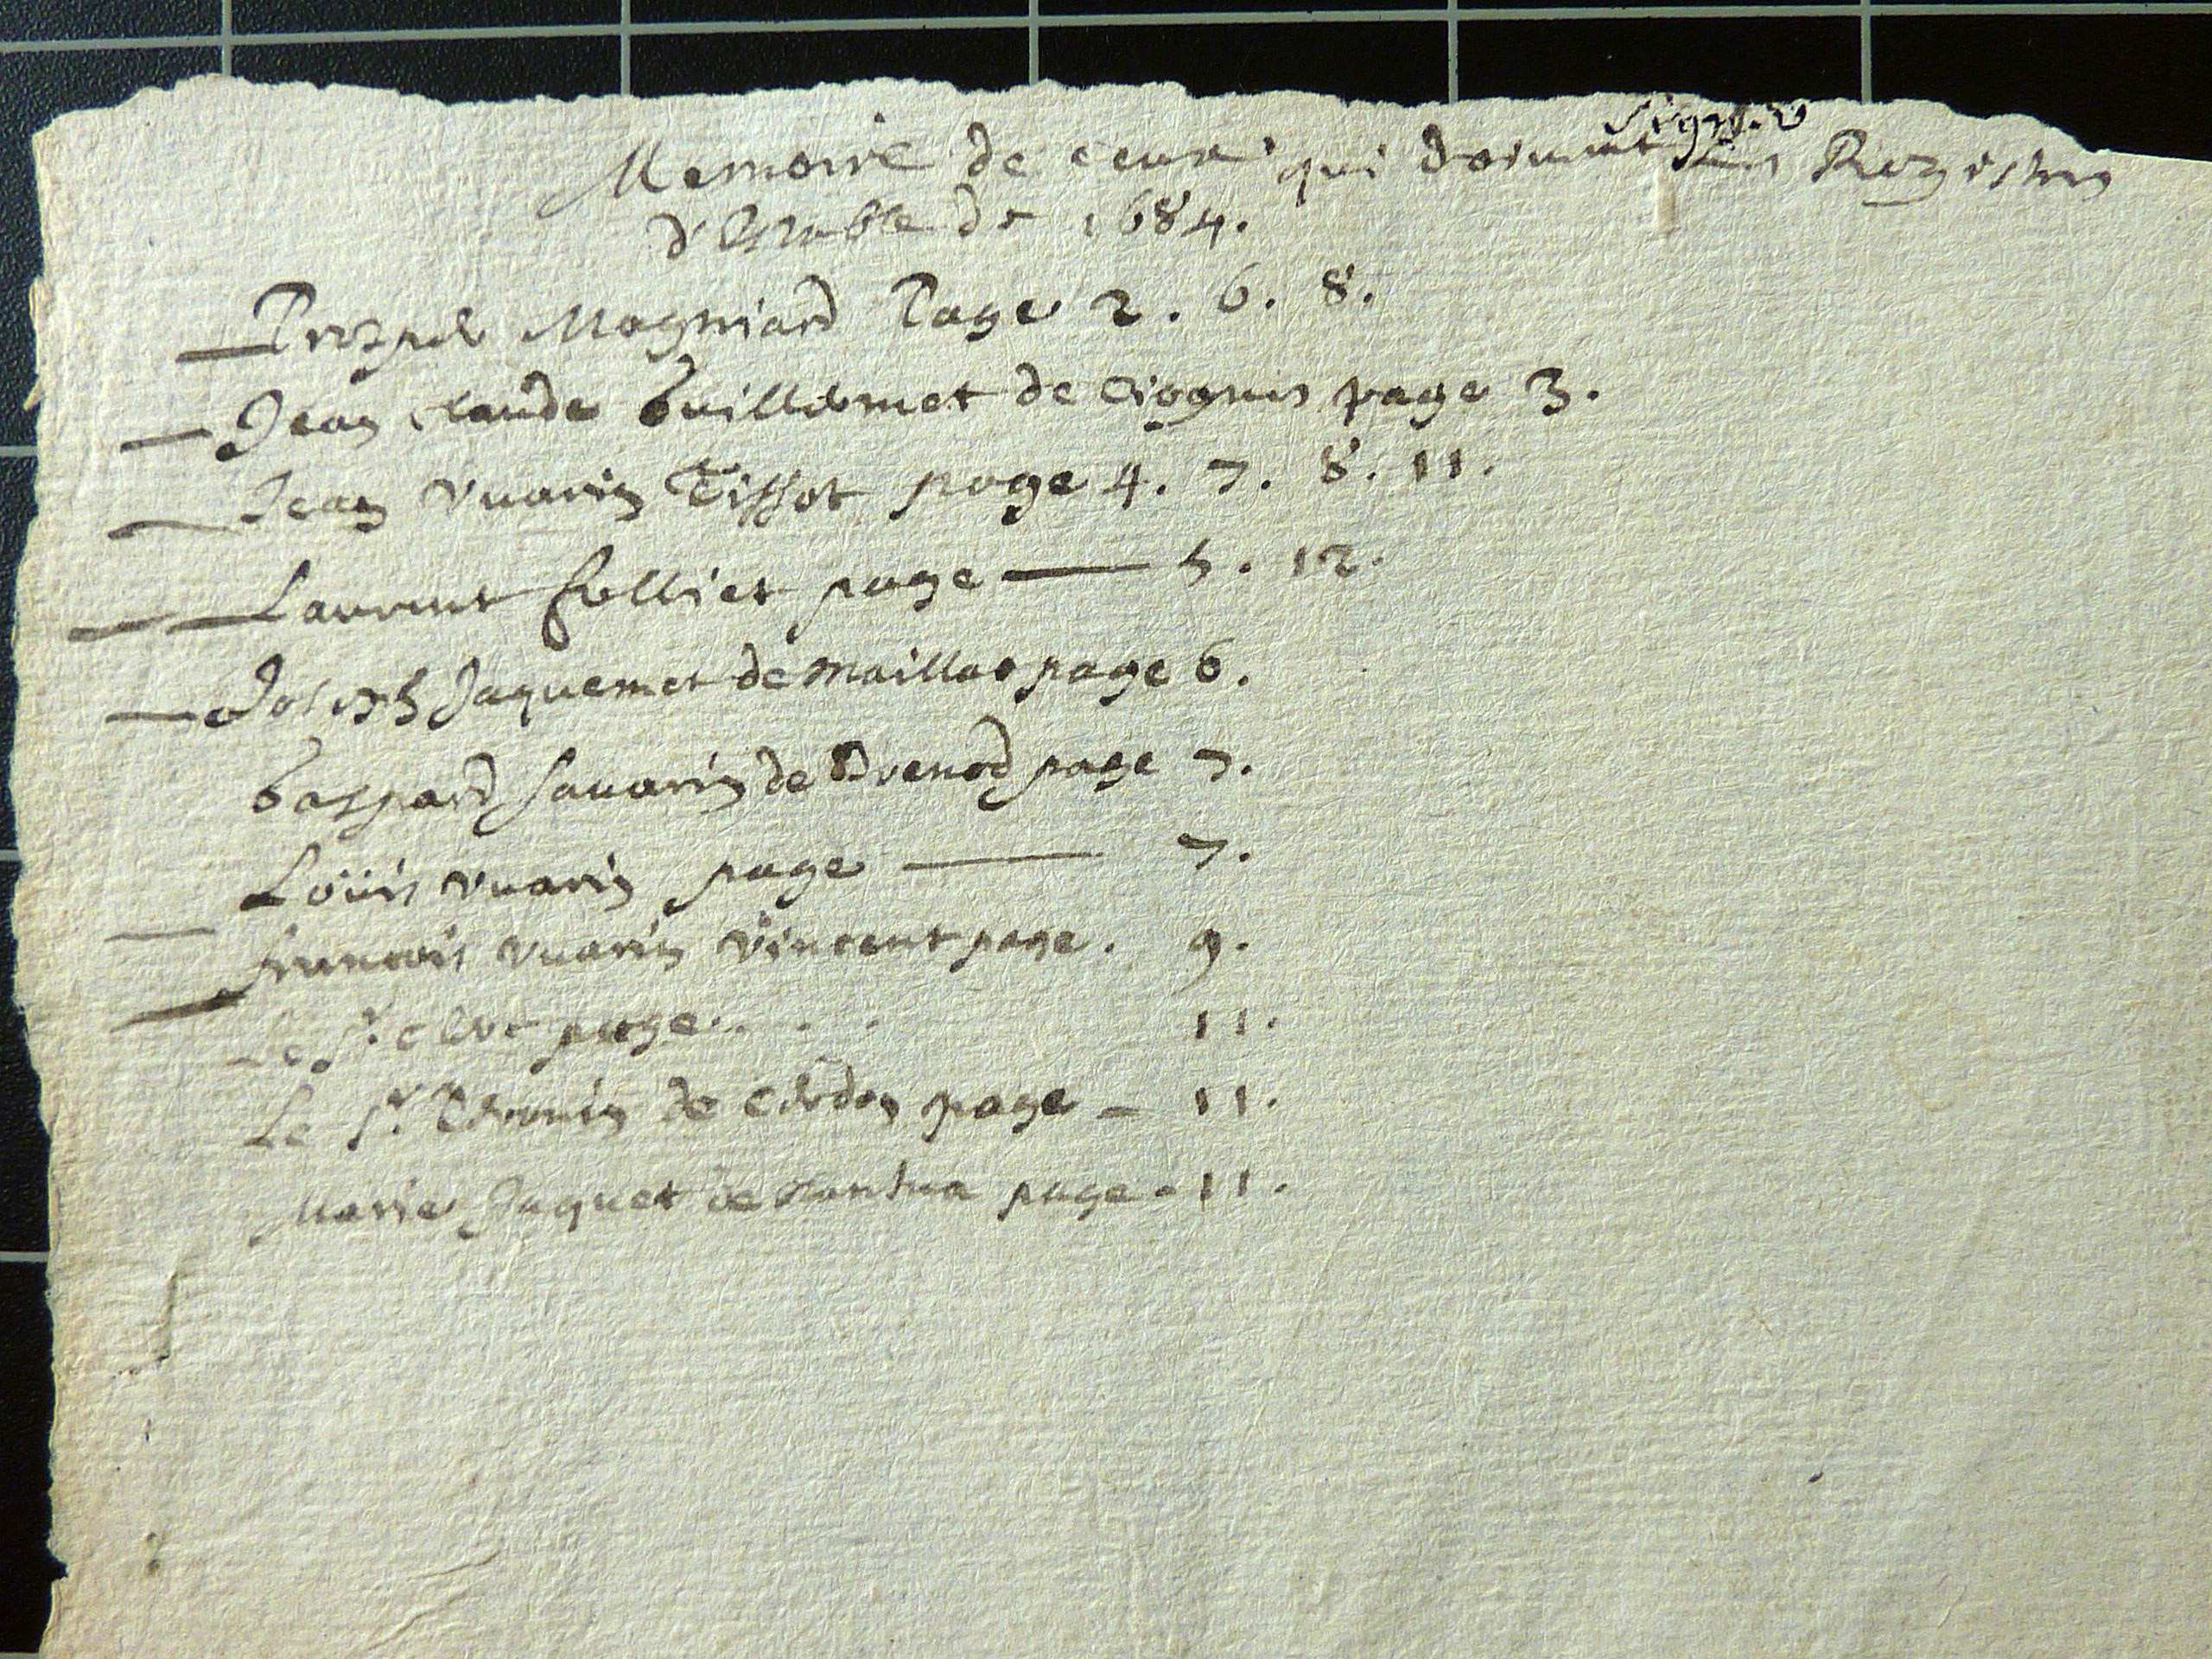 signer
Memoire de ceux qui doivent les Registres
d'Estable de 1684.
Prospel Magniard Page 2. 6. 8.
Jean claude Guillermet de page 3.
Jean vuarin Tissot page 4. 7. 8. 11.
Laurent folliet page 5. 12.
Joseph Jaquemet de maillat page 6.
Gaspard Savarin de Brenod page 7.
Loüis vuarin page 7.
francois vuarin vincent page. 9.
Le Sr. page. 11.
Le Sr. de Cerdon page 11.
Marie Jaquet de nantua page 11.